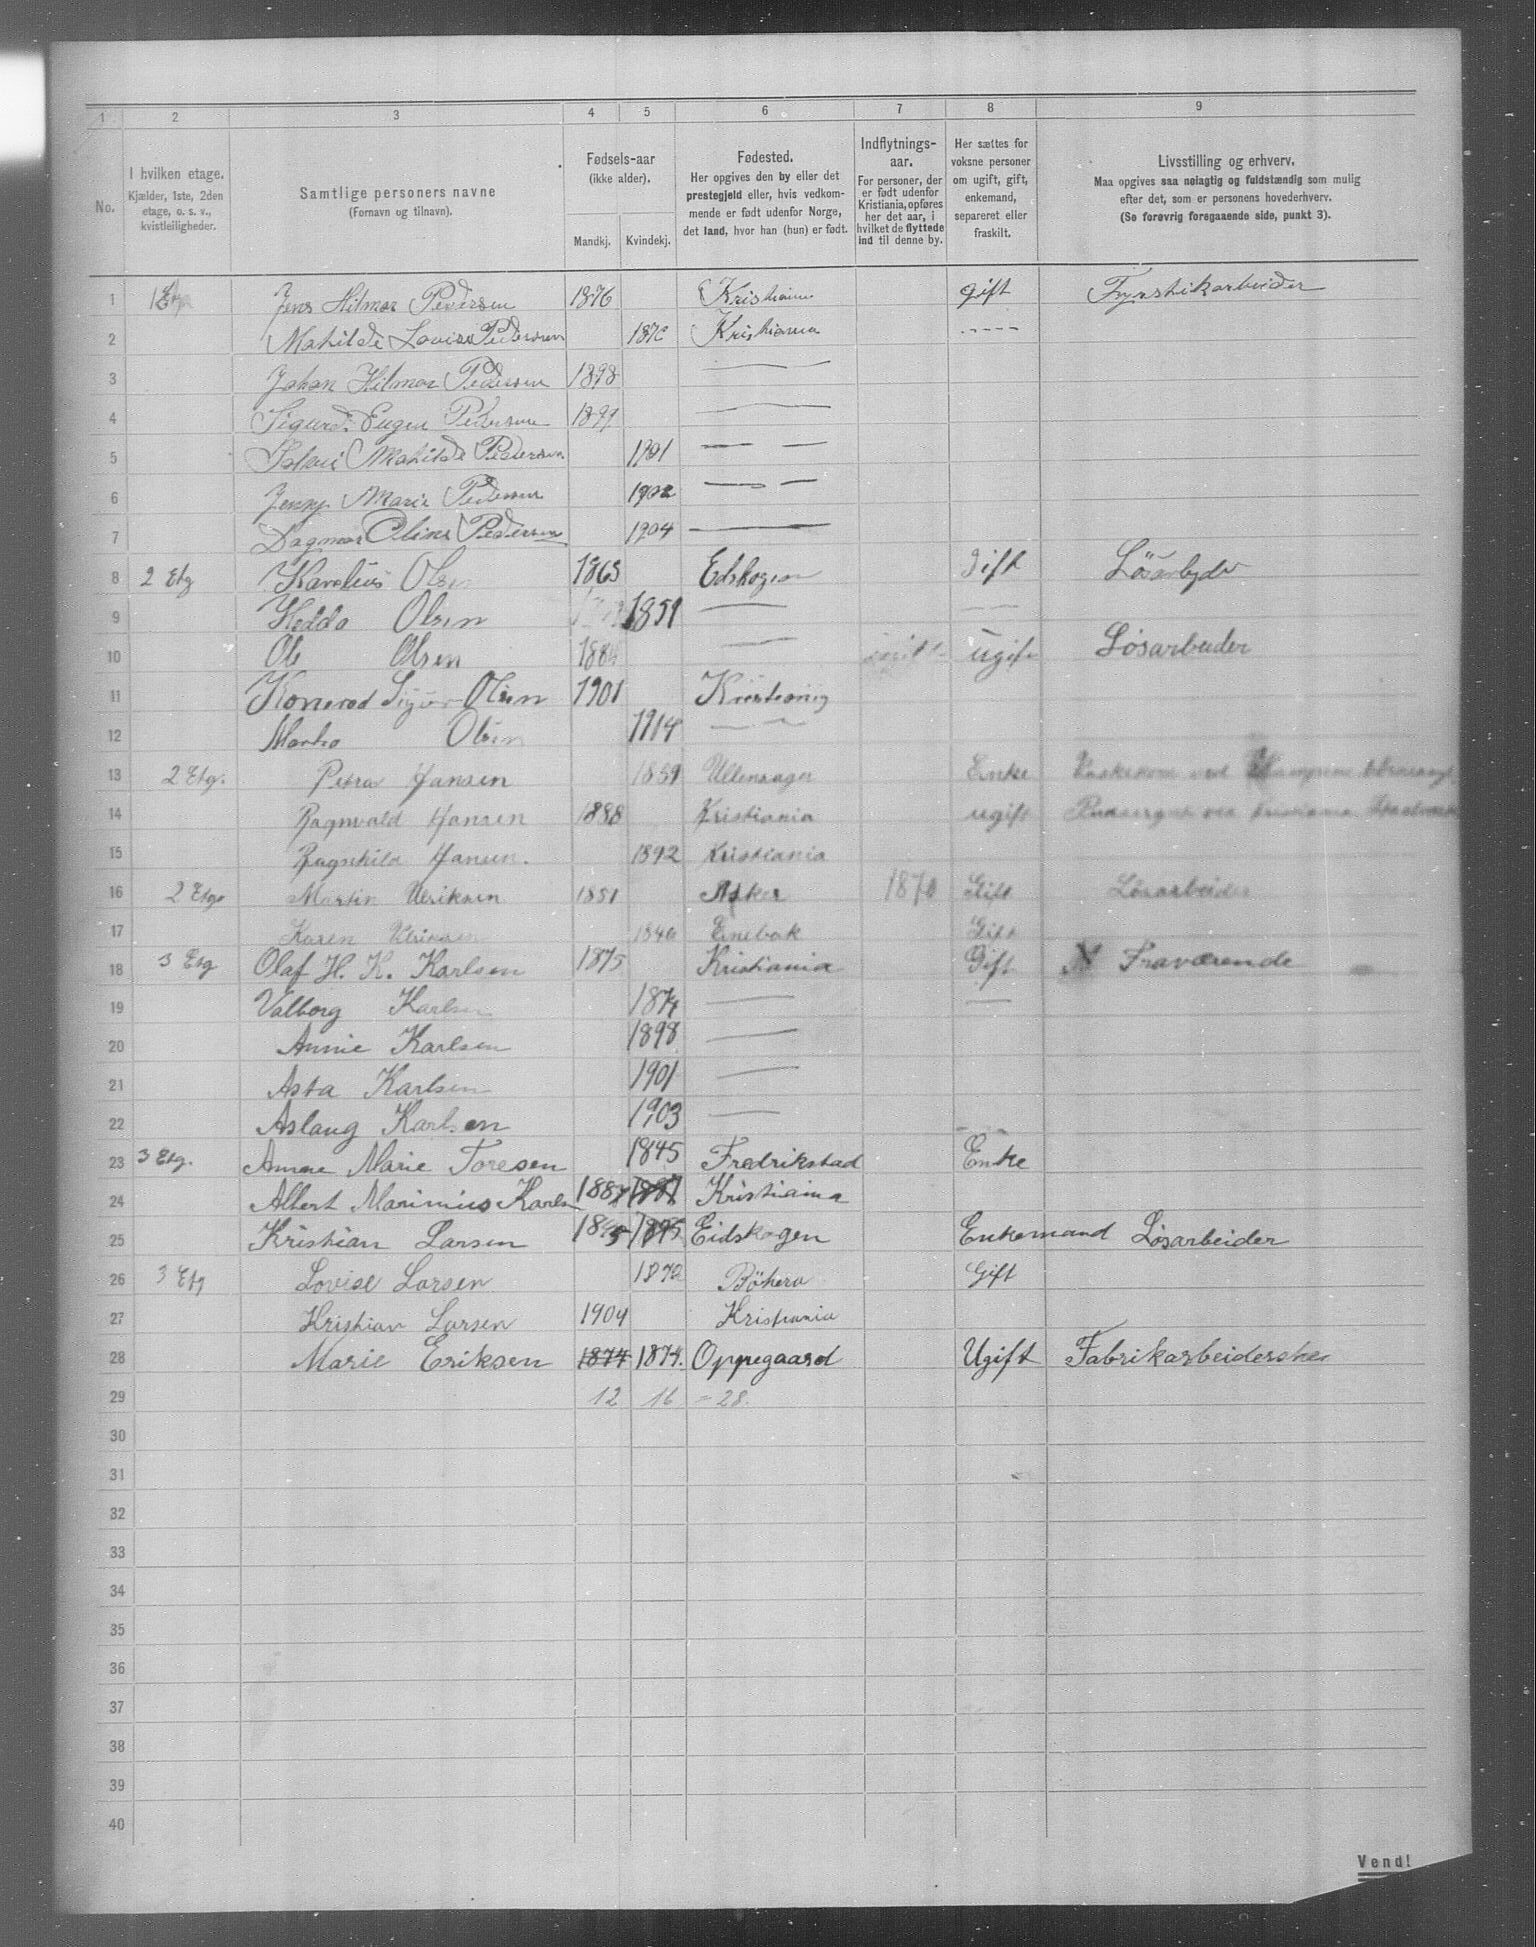 1 2 3 4 5 6 7 8 9
No.
I hvilken etage.
Kjælder, 1ste, 2den
etage, o. s. v.,
kvistleiligheder.
Samtlige personers navne
(Fornavn og tilnavn).
Fødsels-aar
(ikke alder).
Mandkj. Kvindekj.
Fødested.
Her opgives den by eller det
prestegjeld eller, hvis vedkom-
mende er født udenfor Norge,
det land, hvor han (hun) er født.
Indflytnings-
aar.
For personer, der
er født udenfor
Kristiania, opføres
her det aar, i
hvilket de flyttede
ind til denne by.
Her sættes for
voksne personer
om ugift, gift,
enkemand,
separeret eller
fraskilt.
Livsstilling og erhverv.
Maa opgives saa nøiagtig og fuldstændig som mulig
efter det, som er personens hovederhverv.
(Se forøvrig foregaaende side, punkt 3).
1 Jens Hilmar Pedersen 1876 Kristiania gift Fyrstikarbeider
2 Mathilde Lovise Pedersen Kristiania -----
3 Johan Hilmar Pedersen 1898 —
4 Sigurd Eugen Pedersen —
5 Mathilde Pedersen 1901 — —
6 Jenny Marie Pedersen 1902 — —
7 Dagmar Oline Pedersen 1904 —
8 2 Etg Karelius Olsen 1865 Edskogen gift
9 Hedda Olsen 1851 — —
10 Ole Olsen — Ugift Løsarbeider
11 Konerad Olsen 1901
12 Olsen 1914 —
13 2 Etg. Petra Hansen 1859 Ullensager Enke
14 Ragnvald Hansen 1888 Kristiania ugift
15 Ragnhild Hansen. 1892 Kristiania
16 2 Etg. Martin Ulriksen 1851 Asker 1870 Gift Løsarbeider
17 Karen Ulriksen Enebak Gift
18 3 Etg Olaf H. K. Karlsen 1875 Kristiania Gift Fraværende
19 Valborg Karlsen 1874 — —
20 Annie Karlsen 1898 —
21 Asta Karlsen 1901 —
22 Aslaug Karlsen 1903 —
23 3 Etg. Anne Marie Toresen 1845 Fredrikstad Enke
24 Albert Marinius Karlsen 1887 Kristiania
25 Kristian Larsen Eidskogen Enkemand Løsarbeider
26 3 Etg Lovise Larsen 1872 Gift
27 Kristian Larsen 1904 Kristiania
28 Marie Eriksen 1874 1874. Oppegaard Ugift Fabrikarbeiderske
29 12 16 = 28.
30
31
32
33
34
35
36
37
38
39
40
Vend!